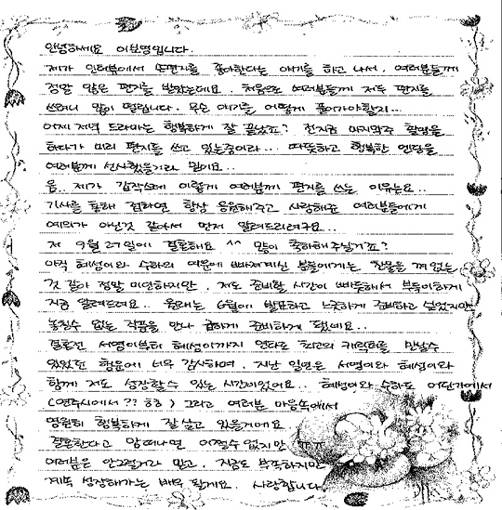 안녕하세요 이보영입니다.
제가 인터뷰에서 손편지를 좋아한다는 얘기를 하고 나서, 여러분들께
정말 많은 편지를 받았는데요. 처음으로 여러분들께 저도 편지를
쓰려니 많이 떨립니다. 무슨 얘기를 어떻게 풀어가야할지...
어제 저녁 드라마는 행복하게 잘 끝났죠? 전 지금 마지막주 촬영을
하다가 미리 편지를 쓰고 있는중이라... 따뜻하고 행복한 엔딩을
여러분께 선사했을거라 믿어요..
음.. 제가 갑작스레 이렇게 여러분께 편지를 쓰는 이유는요..
기사를 통해 접하면 항상 응원해주고 사랑해준 여러분들에게
예의가 아닌것 같아서 먼저 알려드리려구요..
저 9월 27일에 결혼해요 ^^ 많이 축하해주실거죠?
아직 혜성이와 수하의 여운에 빠져계신 분들에게는 찬물을 껴얹는
것 같아 정말 미안하지만, 저도 준비할 시간이 빠듯해서 부득이하게
지금 알려드려요.. 원래는 6월에 발표하고 느긋하게 준비하고 싶었지만
놓칠수 없는 작품을 만나 급하게 준비하게 됐네요..
결혼전 서영이부터 혜성이까지 연타로 최고의 캐릭터를 만날수
있었던 행운에 너무 감사하며, 지난 일년은 서영이와 혜성이와
함께 저도 성장할 수 있는 시간이었어요.. 혜성이와 수하도 어딘가에서
(연주시에서?? ㅎㅎ) 그리고 여러분 마음속에서
영원히 행복하게 잘 살고 있을거에요
결혼한다고 맘 떠나면 어쩔수 없지만 ㅠㅠ
여러분은 안그럴거라 믿고, 지금도 부족하지만
계속 성장해가는 배우 될게요. 사랑합니다